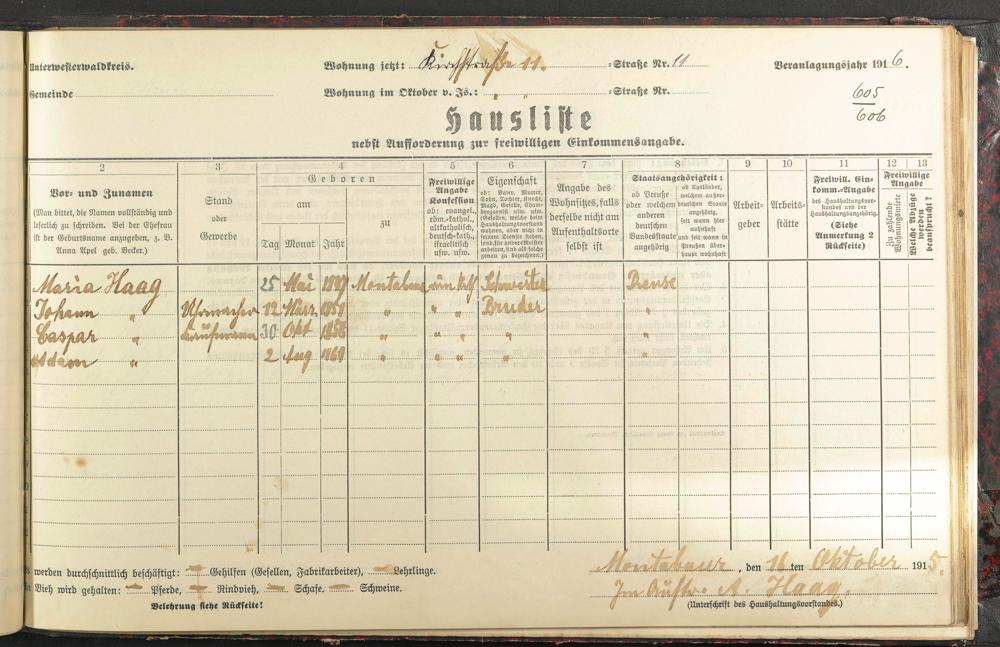 Unterwesterwaldkreis.
Wohnung jetzt: Kirchstraße 11. =Straße Nr. 11
Veranlagungsjahr 1916.
Gemeinde
Wohnung im Oktober v. Js.: " " =Straße Nr.
605
606
Hausliste
nebst Aufforderung zur freiwilligen Einkommensangabe.
2 3 4 5 6 7 8 9 10 11 12 13
Vor- und Zunamen
(Man bittet, die Namen vollständig und
leserlich zu schreiben. Bei der Ehefrau
ist der Geburtsname anzugeben, z. B.
Anna Apel geb. Becker.)
Stand
oder
Gewerbe
Geboren
am
zu
Tag Monat Jahr
Freiwillige
Angabe
Konfession
ob: evangel.,
röm.-kathol.,
altkatholisch,
deutsch-kath.,
israelitisch
usw. usw.
Eigenschaft
ob: Vater, Mutter,
Sohn, Tochter, Knecht,
Magd, Geselle, Cham-
bregarnist usw. usw.
(Gesellen, welche beim
Haushaltungsvorstand
wohnen, aber nicht in
seinem Dienste stehen,
sind als solche
genau zu bezeichnen.)
Angabe des
Wohnsitzes, falls
derselbe nicht am
Aufenthaltsorte
selbst ist
Staatsangehörigkeit:
ob Preuße
oder welchem
anderen
deutschen
Bundesstaate
angehörig
ob Ausländer,
welchem außer-
deutschen Staate
angehörig,
seit wann hier
wohnhaft
und seit wann in
Preußen über-
haupt wohnhaft
Arbeit-
geber
Arbeits-
stätte
Freiwill. Ein-
komm.-Angabe
des Haushaltungsvor-
standes und der
Haushaltungsangehörig.
(Siehe
Anmerkung 2
Rückseite)
Freiwillige
Angabe
Zu zahlende
Wohnungsmiete
Welche Abzüge
werden
beansprucht?
Maria Haag 25 Mai Montabaur Schwester Preuße
Johann " Uhrmacher 12 März 1850 " " " Bruder "
Caspar " Kaufmann 30 Okt " " " " "
Adam " 2 Aug " " " " "
Es werden durchschnittlich beschäftigt: — Gehilfen (Gesellen, Fabrikarbeiter), — Lehrlinge.
An Vieh wird gehalten: — Pferde, — Rindvieh, — Schafe, — Schweine.
Belehrung siehe Rückseite!
Montabaur, den 16 ten Oktober 1915.
Im Auftr. A. Haag.
(Unterschrift des Haushaltungsvorstandes.)